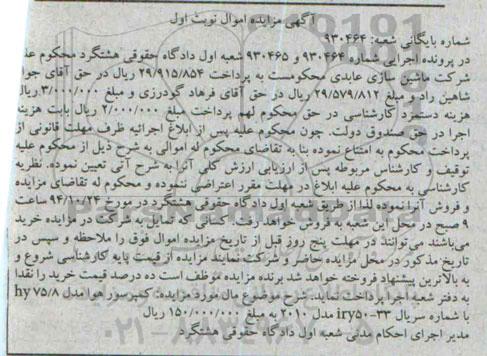 آگهی مزایده اموال نوبت اول
شماره بایگانی شعبه: ۹۳۰۴۶۴
در پرونده اجرایی شماره ۹۳۰۴۶۴ و ۹۳۰۴۶۵ شعبه اول دادگاه حقوقی هشتگرد محکوم عل
شرکت ماشین سازی عابدی محکومست به پرداخت ۲۹/۹۱۵/۸۵۴ ریال در حق آقای جوا
شاهین راد و مبلغ ۲۹/۵۷۹/۸۱۲ ریال در حق آقای فرهاد گودرزی و مبلغ ۳/۰۰۰/۰۰۰ ریال
هزینه دستمزد کارشناسی در حق محکوم لهم پرداخت مبلغ ۲/۰۰۰/۰۰۰ ریال بابت هزینه
اجرا در حق صندوق دولت. چون محکوم علیه پس از ابلاغ اجرائیه ظرف مهلت قانونی از
پرداخت محکوم به امتناع نموده بنا به تقاضای محکوم له اموالی به شرح ذیل از محکوم علیه
توقیف و کارشناس مربوطه پس از ارزیابی ارزش کلی آنرا به شرح آتی تعیین نموده. نظریه
کارشناسی به محکوم علیه ابلاغ در مهلت مقرر اعتراضی ننموده و محکوم له تقاضای مزایده
و فروش آنرا نموده لذا از طریق شعبه اول دادگاه حقوقی هشتگرد در مورخ ساعت
۹ صبح در محل این شعبه به فروش خواهد رفت. کسانی که تمایل به شرکت در مزایده خرید
می‌باشند می‌توانند در مهلت پنج روز قبل از تاریخ مزایده اموال فوق را ملاحظه و سپس در
تاریخ مذکور در محل مزایده حاضر و شرکت نمایند مزایده از قیمت پایه کارشناسی شروع و
به بالاترین پیشنهاد فروخته خواهد شد برنده مزایده موظف است ده درصد قیمت خرید را نقدا
به دفتر شعبه اجرا پرداخت نماید. شرح موضوع مال مورد مزایده: کمپرسور هوا مدل hy ۷۵/۸
با شماره سریال iry۵۰-۳۳ مدل ۲۰۱۰ به مبلغ ۱۵۰/۰۰۰/۰۰۰ ریال
مدیر اجرای احکام مدنی شعبه اول دادگاه حقوقی هشتگرد